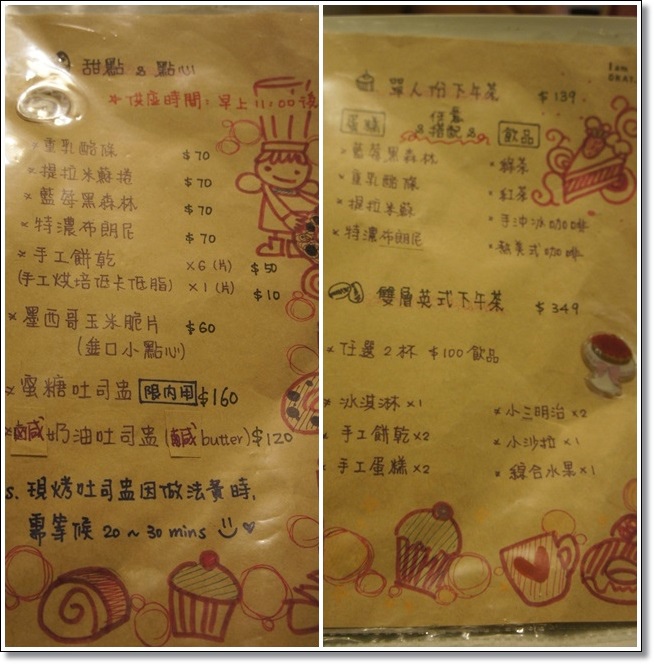 甜點 & 點心
* 供應時間:早上11:00後
* 重乳酪條 $70
* 提拉米蘇捲 $70
* 藍莓黑森林 $70
* 特濃布朗尼 $70
* 手工餅乾 ×6 (片) $50
(手工烘培低卡低脂) ×1 (片) $10
* 墨西哥玉米脆片 $60
(進口小點心)
* 蜜糖吐司盅 限內用 $160
* 鹹奶油吐司盅 (鹹butter) $120
s. 現烤吐司盅因做法費時,
需等候 20 ~ 30 mins
I am
單人份下午茶 $139
蛋糕 任意 飲品
& 搭配 &
* 藍莓黑森林
* 重乳酪條
* 提拉米蘇
* 特濃布朗尼
* 綠茶
* 紅茶
* 手沖冰咖啡
* 熱美式咖啡
雙層英式下午茶 $349
* 任選2杯 $100飲品
* 冰淇淋 ×1
* 手工餅乾×2
* 手工蛋糕×2
* 小三明治 ×2
* 小沙拉 ×1
* 綜合水果×1